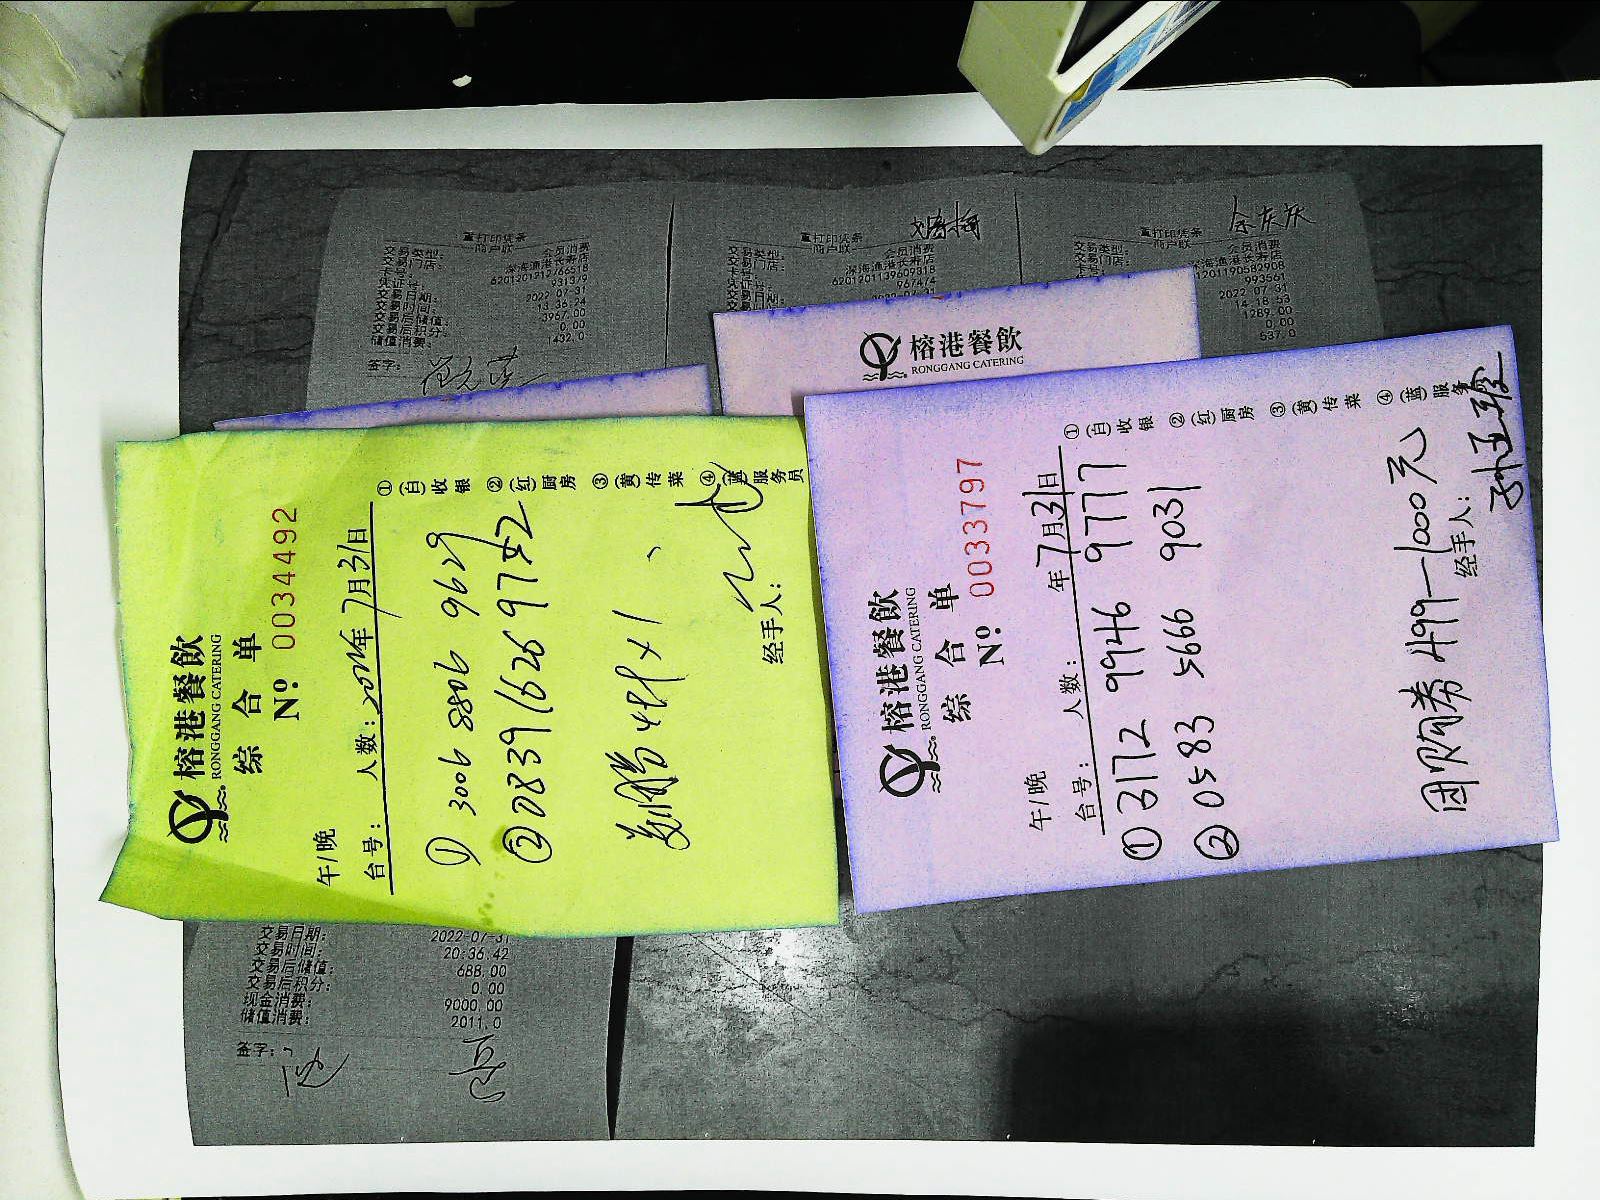 重打印凭条
商户联
交易类型: 会员消费
交易门店: 深海渔港长寿店
卡号: 6201201212766518
凭证号: 931379
交易日期: 2022-07-31
交易时间: 13:36:24
交易后储值: 3967.00
交易后积分: 0.00
储值消费: 1432.0
签字:
重打印凭条
商户联
交易类型: 会员消费
交易门店: 深海渔港长寿店
卡号: 6201201139609318
凭证号: 967474
交易日期: 2022-07-31
余灰灰
重打印凭条
商户联
交易类型: 会员消费
交易门店: 深海渔港长寿店
1201190582908
993561
2022-07-31
14:18:53
1289.00
0.00
537.0
榕港餐飲
RONGGANG CATERING
榕港餐飲
RONGGANG CATERING
综合单
No: 0034492
午/晚
台号: 人数: 2022年7月31日
① 3006 8806 9629
② 0839 1626 9742
x1
经手人:
①(白)收银 ②(红)厨房 ③(黄)传菜 ④(蓝)服务员
榕港餐飲
RONGGANG CATERING
综合单
No: 0033797
午/晚
台号: 人数: 年7月31日
① 3172 9946 9777
② 0583 5666 9031
团购券 499—1000元
经手人:
①(白)收银 ②(红)厨房 ③(黄)传菜 ④(蓝)服务
交易日期: 2022-07-31
交易时间: 20:36:42
交易后储值: 688.00
交易后积分: 0.00
现金消费: 9000.00
储值消费: 2011.0
签字: